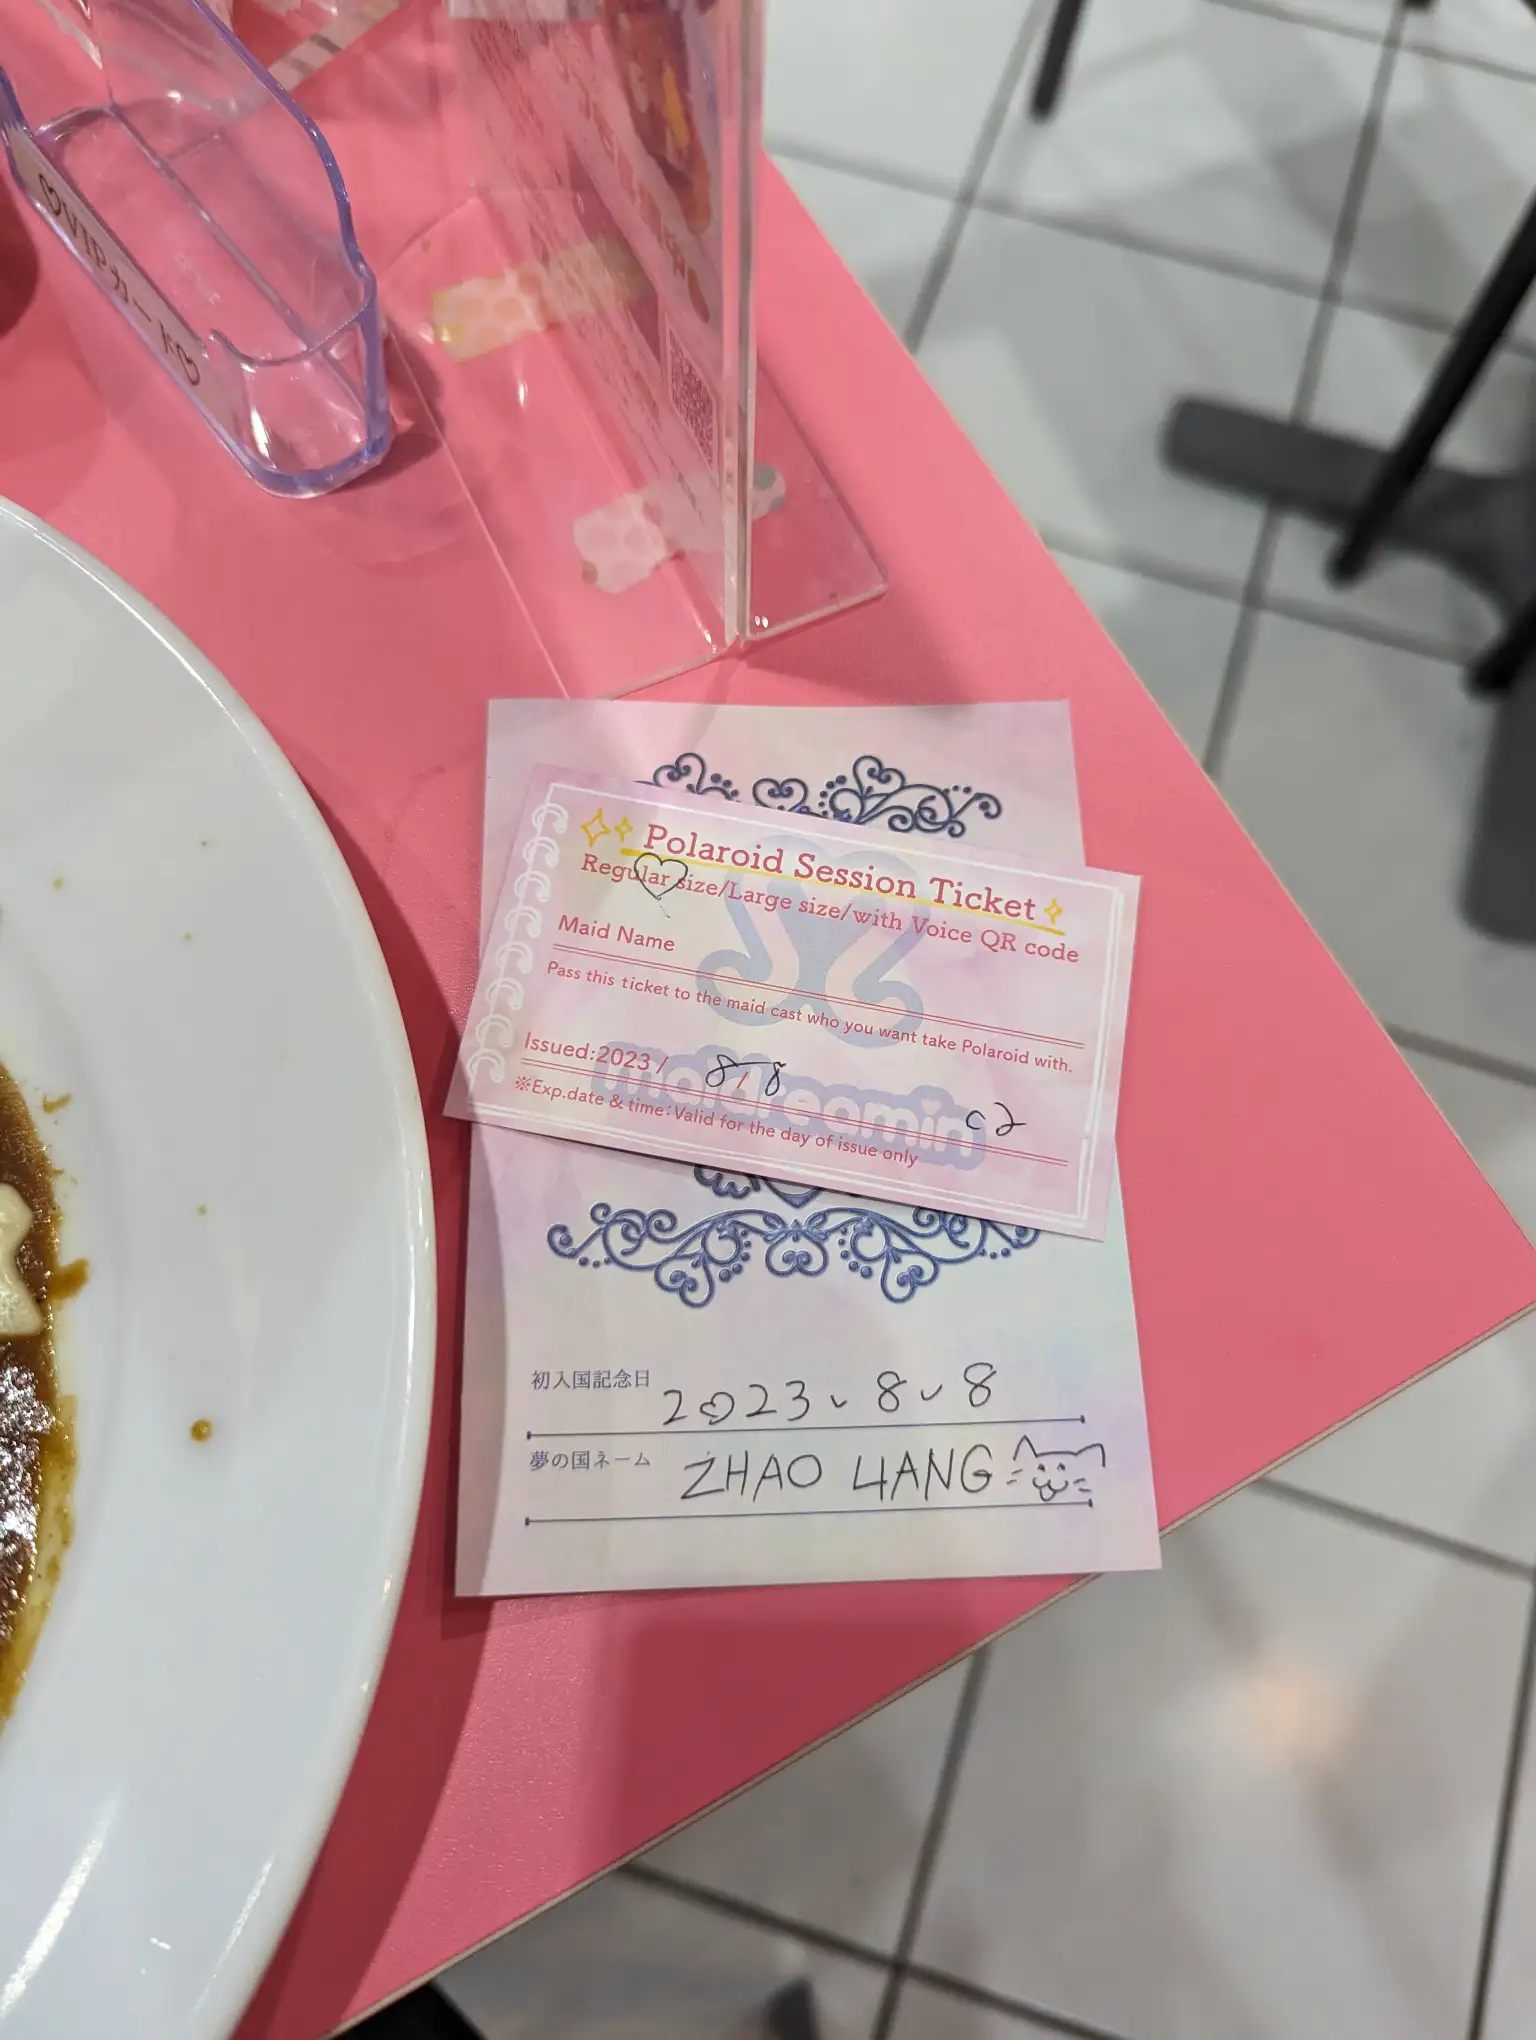 ♡VIPカード♡
Polaroid Session Ticket
Regular size/Large size/with Voice QR code
Maid Name
Pass this ticket to the maid cast who you want take Polaroid with.
Issued:2023 / 8/8
※Exp.date & time:Valid for the day of issue only
maidreamin
初入国記念日 2023、8、8
夢の国ネーム ZHAO LIANG